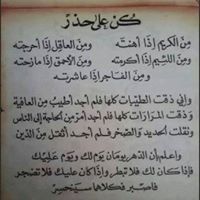 كن على حذر
من الكريم إذا أهنته ومن العاقل إذا أحرجته
ومن اللئيم إذا أكرمته ومن الأحمق إذا مازحته
ومن الفاجر إذا عاشرته
وإني ذقت الطيبات كلها فلم أجد أطيب من العافية
وذقت المرارات كلها فلم أجد أمر من الحاجة إلى الناس
ونقلت الحديد والصخر فلم أجد أثقل من الدين
واعلم بأن الدهر يومان يوم لك ويوم عليك
فإذا كان لك فلا تبطر وإذا كان عليك فلا تضجر
فاصبر فكلاهما سينحسر